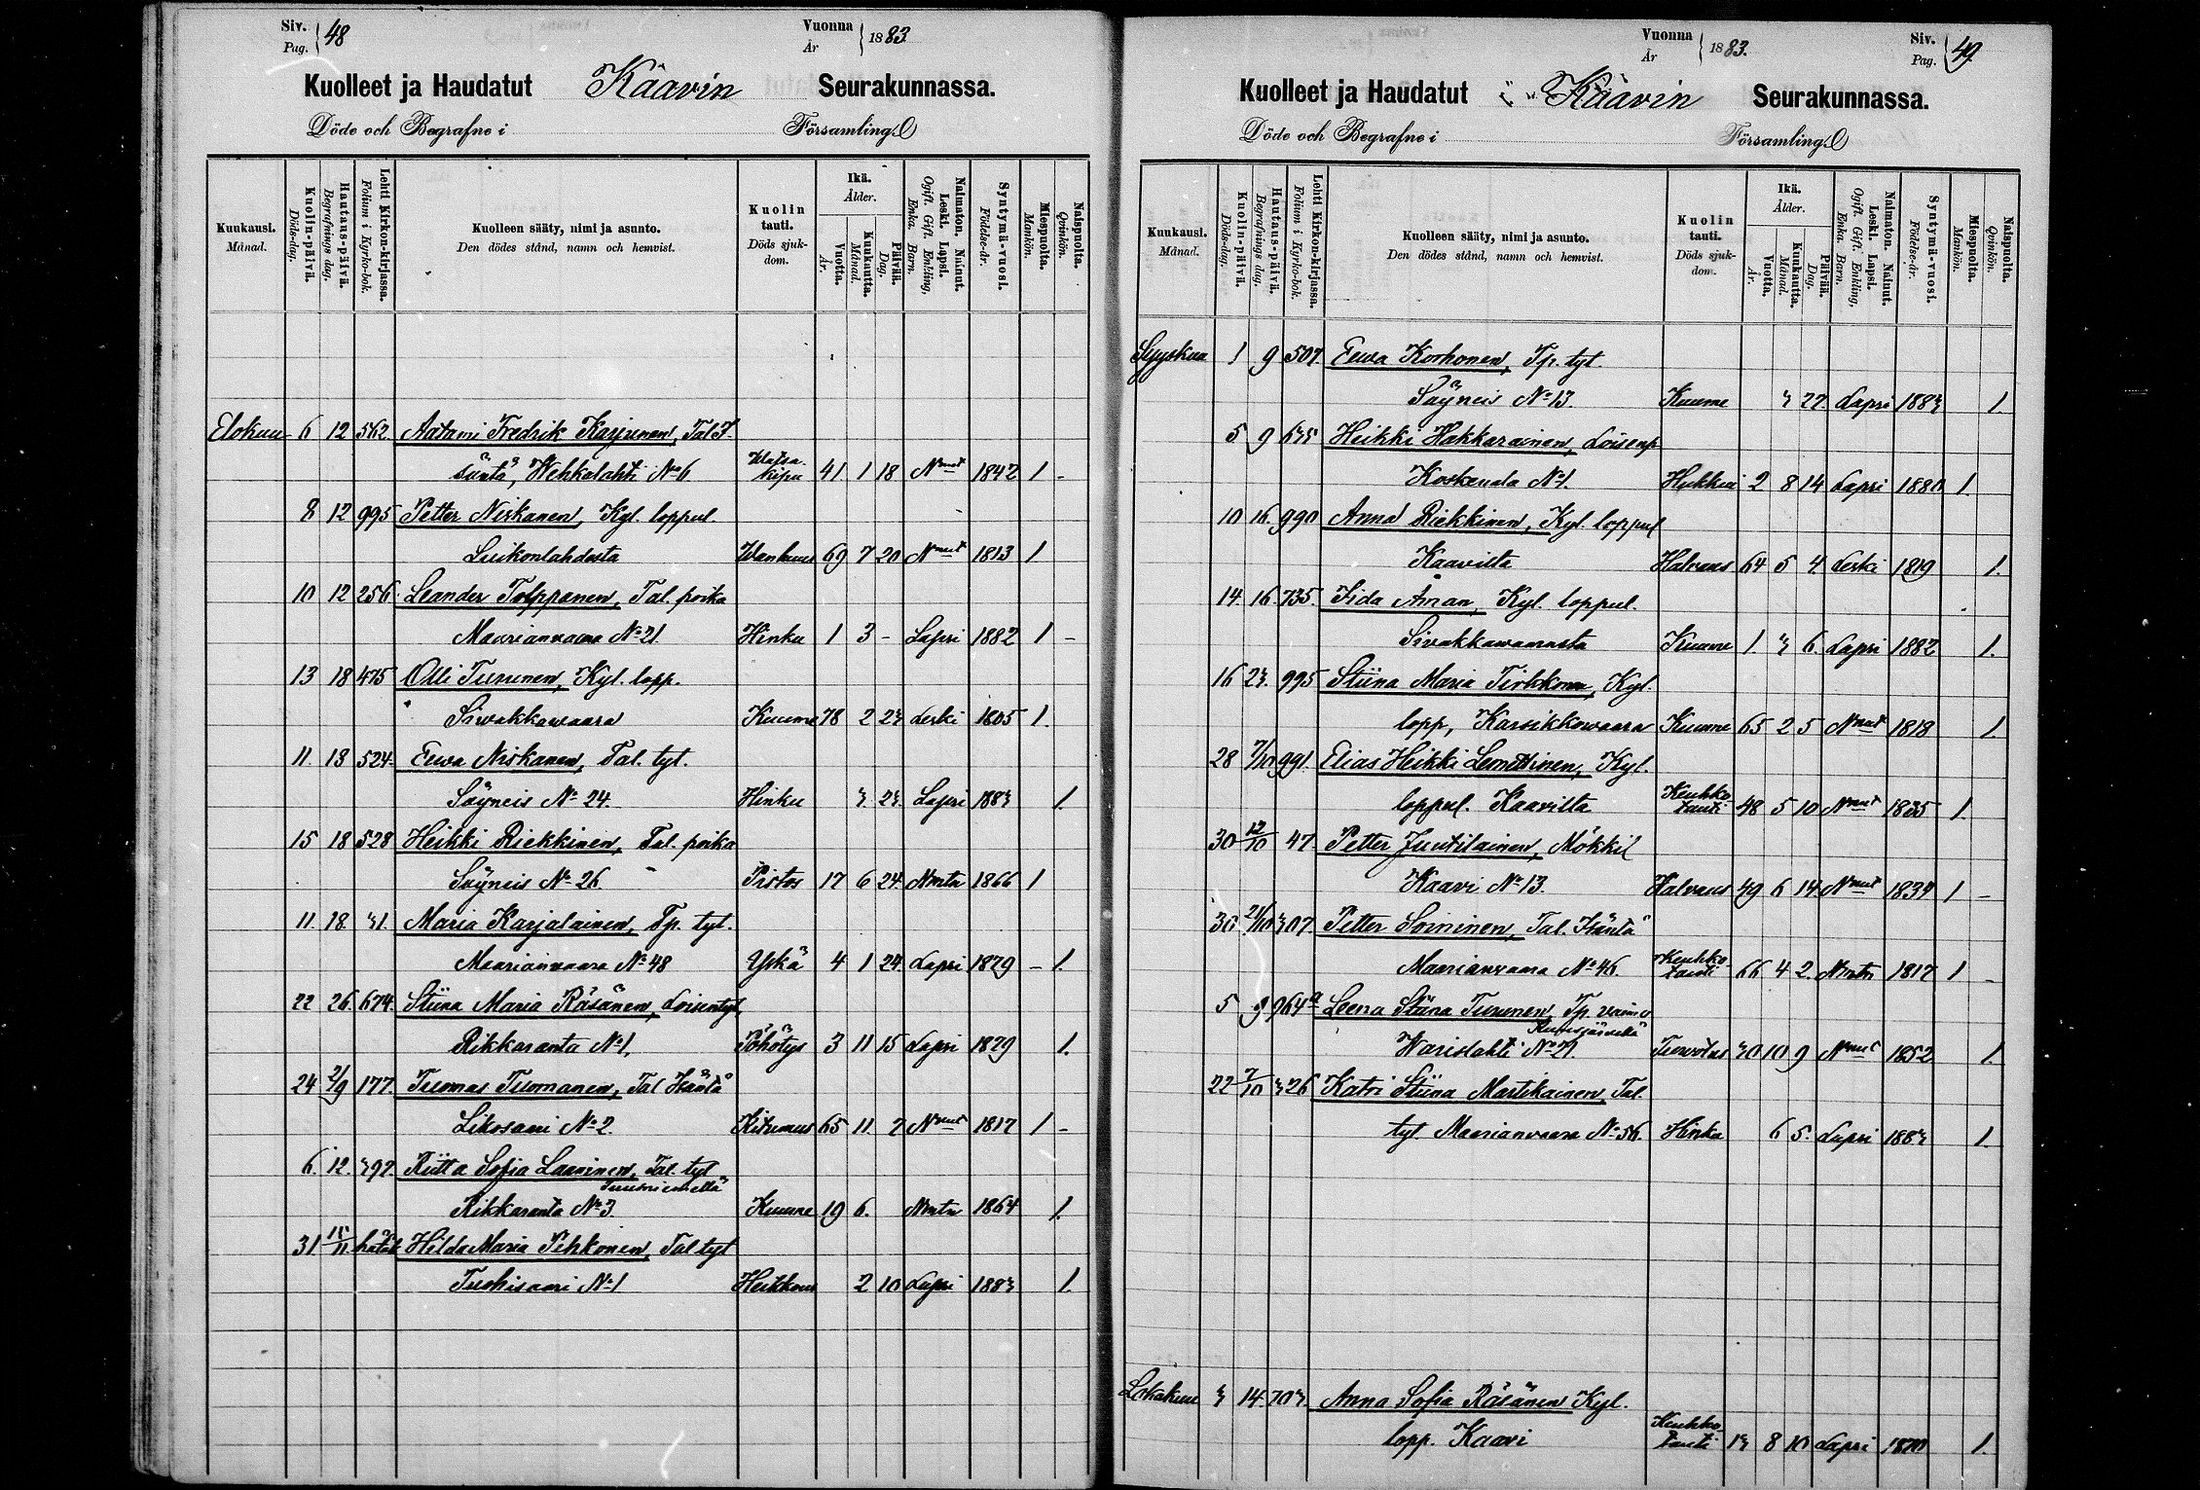 Siv. Pag. 48
Vuonna År 1883.
Kuolleet ja Haudatut Kaavin Seurakunnassa.
Döde och Begrafne i Församling.
Kuukausi. Månad.
Kuolin-päivä. Döds-dag.
Hautaus-päivä. Begrafnings dag.
Lehti Kirkon-kirjassa. Folium i Kyrko-bok.
Kuolleen sääty, nimi ja asunto. Den dödes stånd, namn och hemvist.
Kuolin tauti. Döds sjukdom.
Ikä. Ålder.
Vuotta. År.
Kuukautta. Månad.
Päivää. Dag.
Naimaton. Nainut. Leski. Lapsi. Ogift. Gift. Enkling, Enka. Barn.
Syntymä-vuosi. Födelse-år.
Miespuolta. Mankön.
Naispuolta. Qvinkön.
Elokuu 6 12 562 Aatami Fredrik Karjunen, Tal. I-
säntä, Wehkalahti No 6 Watsa-kipu 41 1 18 Nnut 1842 1 -
8 12 995 Petter Niskanen, Kyl. loppul.
Luikonlahdesta Wanhuus 69 7 20 Nnut 1813 1
10 12 256 Leander Tolppanen, Tal. poika
Maarianvaara No 21 Hinku 1 3 - Lapsi 1882 1 -
13 18 475 Olli Turunen, Kyl. lopp.
Siwakkawaara Kuume 78 2 23 Leski 1805 1.
11. 18 524 Eewa Niskanen, Tal. tyt.
Säyneis No 24. Hinku 3 23. Lapsi 1883 1.
15 18 528 Heikki Riekkinen, Tal. poika
Säyneis No 26. Pistos 17 6 24 Nmtn 1866 1
11. 18. 31. Maria Karjalainen, Tp. tyt.
Maarianvaara No 48 Yskä 4 1 24. Lapsi 1879 - 1.
22 26. 674. Stiina Maria Räsänen, Loisentyt,
Rikkaranta No 1, Pöhötys 3 11 15 Lapsi 1879 1.
24 2/9 177. Tuomas Tuomanen, Tal Isäntä
Likosaari No 2. Kitumus 65 11. 7 Nnut 1817 1 -
6. 12. 392. Riitta Sofia Laaninen, Tal. tyt
Tuusniemellä
Rikkaranta No 3 Kuume 19 6. Nmtn 1864 1.
31 Hilda Maria Pihkonen, Tal tyt
Tuohisaari No 1 Heikkous 2 10 Lapsi 1883 1.
Vuonna År 1883.
Siv. Pag. 49
Kuolleet ja Haudatut Kaavin Seurakunnassa.
Döde och Begrafne i Församling.
Kuukausi. Månad.
Kuolin-päivä. Döds-dag.
Hautaus-päivä. Begrafnings dag.
Lehti Kirkon-kirjassa. Folium i Kyrko-bok.
Kuolleen sääty, nimi ja asunto. Den dödes stånd, namn och hemvist.
Kuolin tauti. Döds sjukdom.
Ikä. Ålder.
Vuotta. År.
Kuukautta. Månad.
Päivää. Dag.
Naimaton. Nainut. Leski. Lapsi. Ogift. Gift. Enkling, Enka. Barn.
Syntymä-vuosi. Födelse-år.
Miespuolta. Mankön.
Naispuolta. Qvinkön.
Syyskuu 1 9 507. Eewa Korhonen, Tp. tyt.
Säyneis No 13. Kuume 3 22. Lapsi 1883 1.
5 9 Heikki Hakkarainen, Loisenp
Koskenala No 1. Hukkui 2 8 14 Lapsi 1880 1.
10 16. 990 Anna Riekkinen, Kyl. loppul
Kaavilta Halvaus 64 5 4. Leski 1819 1.
14. 16. 735. Iida Åman, Kyl. loppul.
Sivakkawaarasta Kuume 1. 3 6. Lapsi 1882 1.
16 23. 995 Stiina Maria Tirkkonen, Kyl.
lopp, Karsikkowaara Kuume 65 2 5 Nnut 1818 1.
28 7/10 991. Elias Heikki Lemettinen, Kyl.
loppul. Kaavilta Keuhko tauti 48 5 10 Nnut 1835 1.
30 12/10 47 Petter Juutilainen, Mökkil
Kaavi No 13. Halvaus 49 6 14. Nnut 1834 1 -
30. 21/10 307. Petter Soininen, Tal. Isäntä
Maarianvaara No 46. Keuhko-tauti 66 4 2. Nmtn 1817 1 -
5 9 964a Leena Stiina Turunen, Tp. vaimo
Kuusjärvellä
Warislahti No 21. Turvotus 30 10 9 Nnut 1852 1.
22 7/10 326 Katri Stiina Martikainen, Tal.
tyt. Maarianvaara No 56. Hinku 6 5. Lapsi 1883 1.
Lokakuu 3 14. 703 Anna Sofia Räsänen Kyl.
lopp. Kaavi Keuhko-tauti 13 8 10 Lapsi 1870 1.